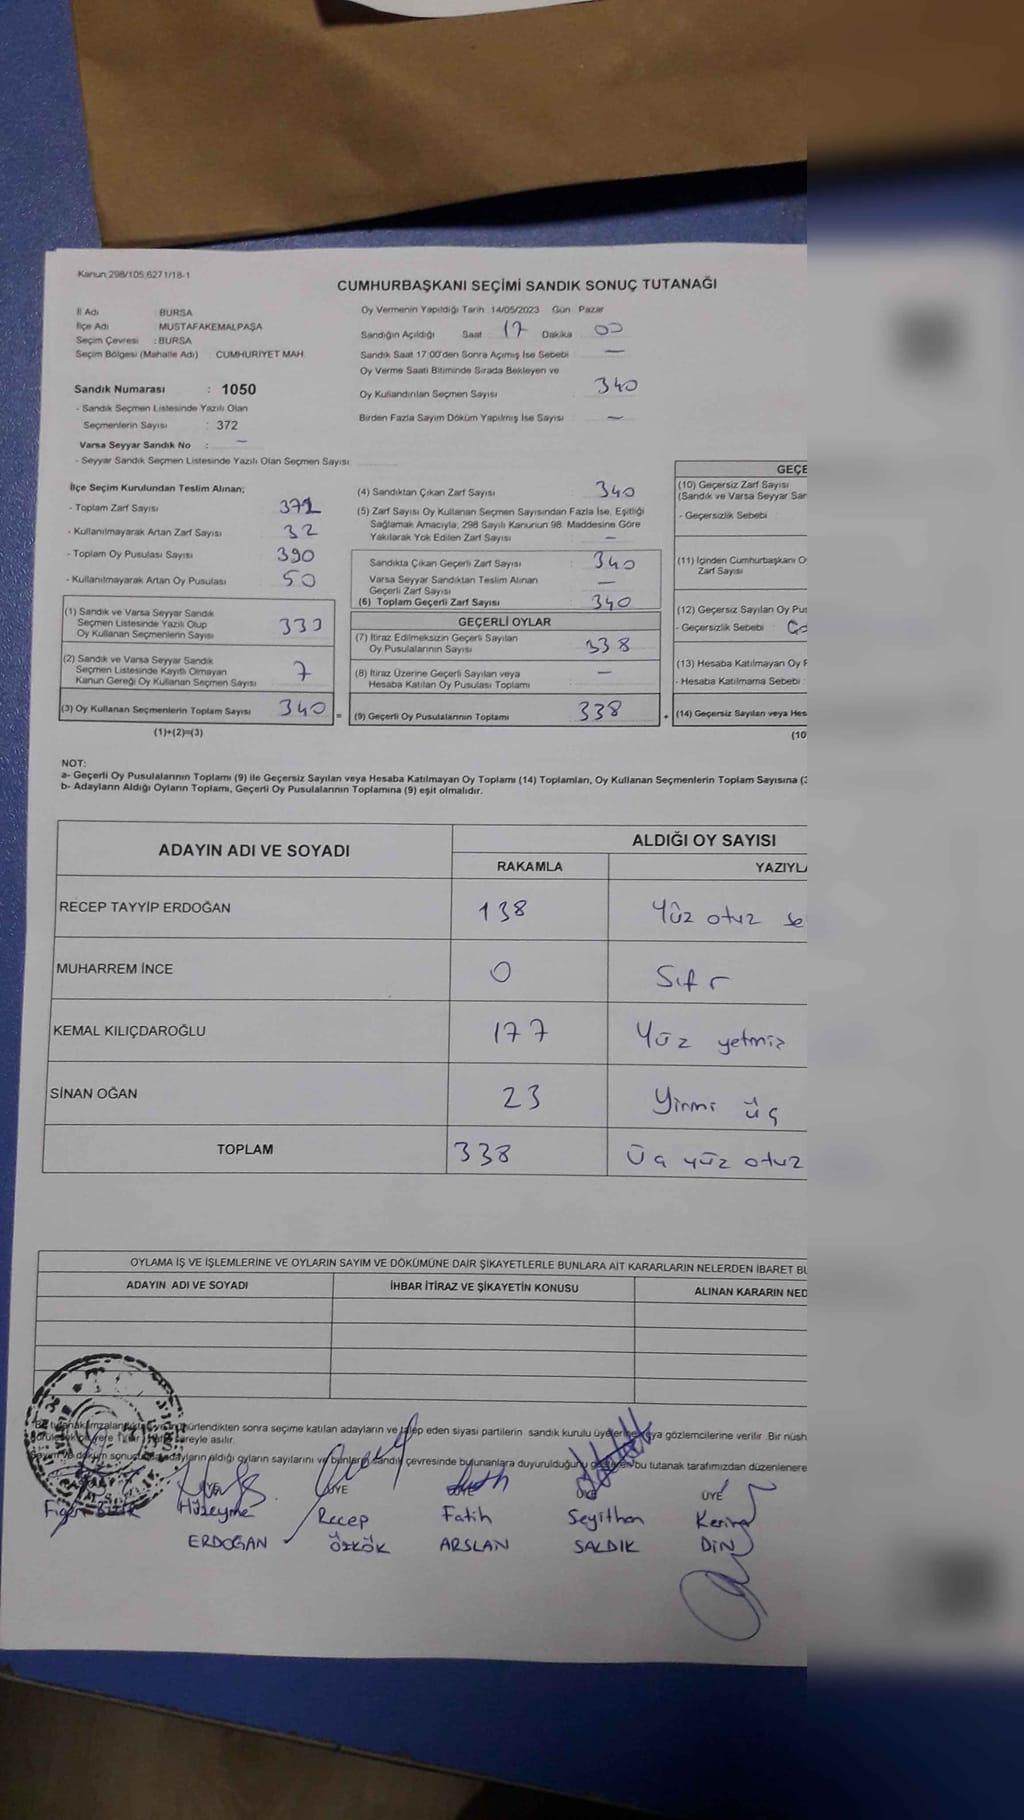 Kanun:298/105,6271/18-1
CUMHURBAŞKANI SEÇİMİ SANDIK SONUÇ TUTANAĞI
İl Adı : BURSA
İlçe Adı : MUSTAFAKEMALPAŞA
Seçim Çevresi : BURSA
Seçim Bölgesi (Mahalle Adı) CUMHURİYET MAH.
Oy Vermenin Yapıldığı Tarih 14/05/2023 Gün Pazar
Sandığın Açıldığı Saat 17 Dakika 00
Sandık Saat 17:00'den Sonra Açımış İse Sebebi : —
Oy Verme Saati Bitiminde Sırada Bekleyen ve
Oy Kullandırılan Seçmen Sayısı 340
Birden Fazla Sayım Döküm Yapılmış İse Sayısı : —
Sandık Numarası : 1050
- Sandık Seçmen Listesinde Yazılı Olan
Seçmenlerin Sayısı : 372
Varsa Seyyar Sandık No : —
- Seyyar Sandık Seçmen Listesinde Yazılı Olan Seçmen Sayısı
İlçe Seçim Kurulundan Teslim Alınan;
- Toplam Zarf Sayısı 372
- Kullanılmayarak Artan Zarf Sayısı : 32
- Toplam Oy Pusulası Sayısı 390
- Kullanılmayarak Artan Oy Pusulası : 50
(1) Sandık ve Varsa Seyyar Sandık
Seçmen Listesinde Yazılı Olup
Oy Kullanan Seçmenlerin Sayısı : 333
(2) Sandık ve Varsa Seyyar Sandık
Seçmen Listesinde Kayıtlı Olmayan
Kanun Gereği Oy Kullanan Seçmen Sayısı : 7
(3) Oy Kullanan Seçmenlerin Toplam Sayısı 340 =
(1)+(2)=(3)
(4) Sandıktan Çıkan Zarf Sayısı : 340
(5) Zarf Sayısı Oy Kullanan Seçmen Sayısından Fazla İse, Eşitliği
Sağlamak Amacıyla; 298 Sayılı Kanunun 98. Maddesine Göre
Yakılarak Yok Edilen Zarf Sayısı : —
Sandıkta Çıkan Geçerli Zarf Sayısı : 340
Varsa Seyyar Sandıktan Teslim Alınan
Geçerli Zarf Sayısı : —
(6) Toplam Geçerli Zarf Sayısı : 340
GEÇERLİ OYLAR
(7) İtiraz Edilmeksizin Geçerli Sayılan
Oy Pusulalarının Sayısı : 338
(8) İtiraz Üzerine Geçerli Sayılan veya
Hesaba Katılan Oy Pusulası Toplamı : —
(9) Geçerli Oy Pusulalarının Toplamı 338 +
GEÇE
(10) Geçersiz Zarf Sayısı
(Sandık ve Varsa Seyyar San
- Geçersizlik Sebebi :
(11) İçinden Cumhurbaşkanı O
Zarf Sayısı
(12) Geçersiz Sayılan Oy Pus
- Geçersizlik Sebebi :
(13) Hesaba Katılmayan Oy P
- Hesaba Katılmama Sebebi :
(14) Geçersiz Sayılan veya Hes
(10
NOT:
a- Geçerli Oy Pusulalarının Toplamı (9) ile Geçersiz Sayılan veya Hesaba Katılmayan Oy Toplamı (14) Toplamları, Oy Kullanan Seçmenlerin Toplam Sayısına (3
b- Adayların Aldığı Oyların Toplamı, Geçerli Oy Pusulalarının Toplamına (9) eşit olmalıdır.
ADAYIN ADI VE SOYADI ALDIĞI OY SAYISI
RAKAMLA YAZIYLA
RECEP TAYYİP ERDOĞAN 138 Yüz otuz se
MUHARREM İNCE 0 Sıfır
KEMAL KILIÇDAROĞLU 177 Yüz yetmiz
SİNAN OĞAN 23 Yirmi üç
TOPLAM 338 Üç yüz otuz
OYLAMA İŞ VE İŞLEMLERİNE VE OYLARIN SAYIM VE DÖKÜMÜNE DAİR ŞİKAYETLERLE BUNLARA AİT KARARLARIN NELERDEN İBARET BU
ADAYIN ADI VE SOYADI İHBAR İTİRAZ VE ŞİKAYETİN KONUSU ALINAN KARARIN NED
sonra seçime katılan adayların ve talep eden siyasi partilerin sandık kurulu üyelerine veya gözlemcilerine verilir. Bir nüsh
süreyle asılır.
adayların aldığı oyların sayılarını ve bunların sandık çevresinde bulunanlara duyurulduğunu bu tutanak tarafımızdan düzenlenere
ÜYE ÜYE ÜYE ÜYE
Hüzeyme Recep Fatih Seyithan Kerima
ERDOGAN ÖZKÖK ARSLAN SALDIK DİN